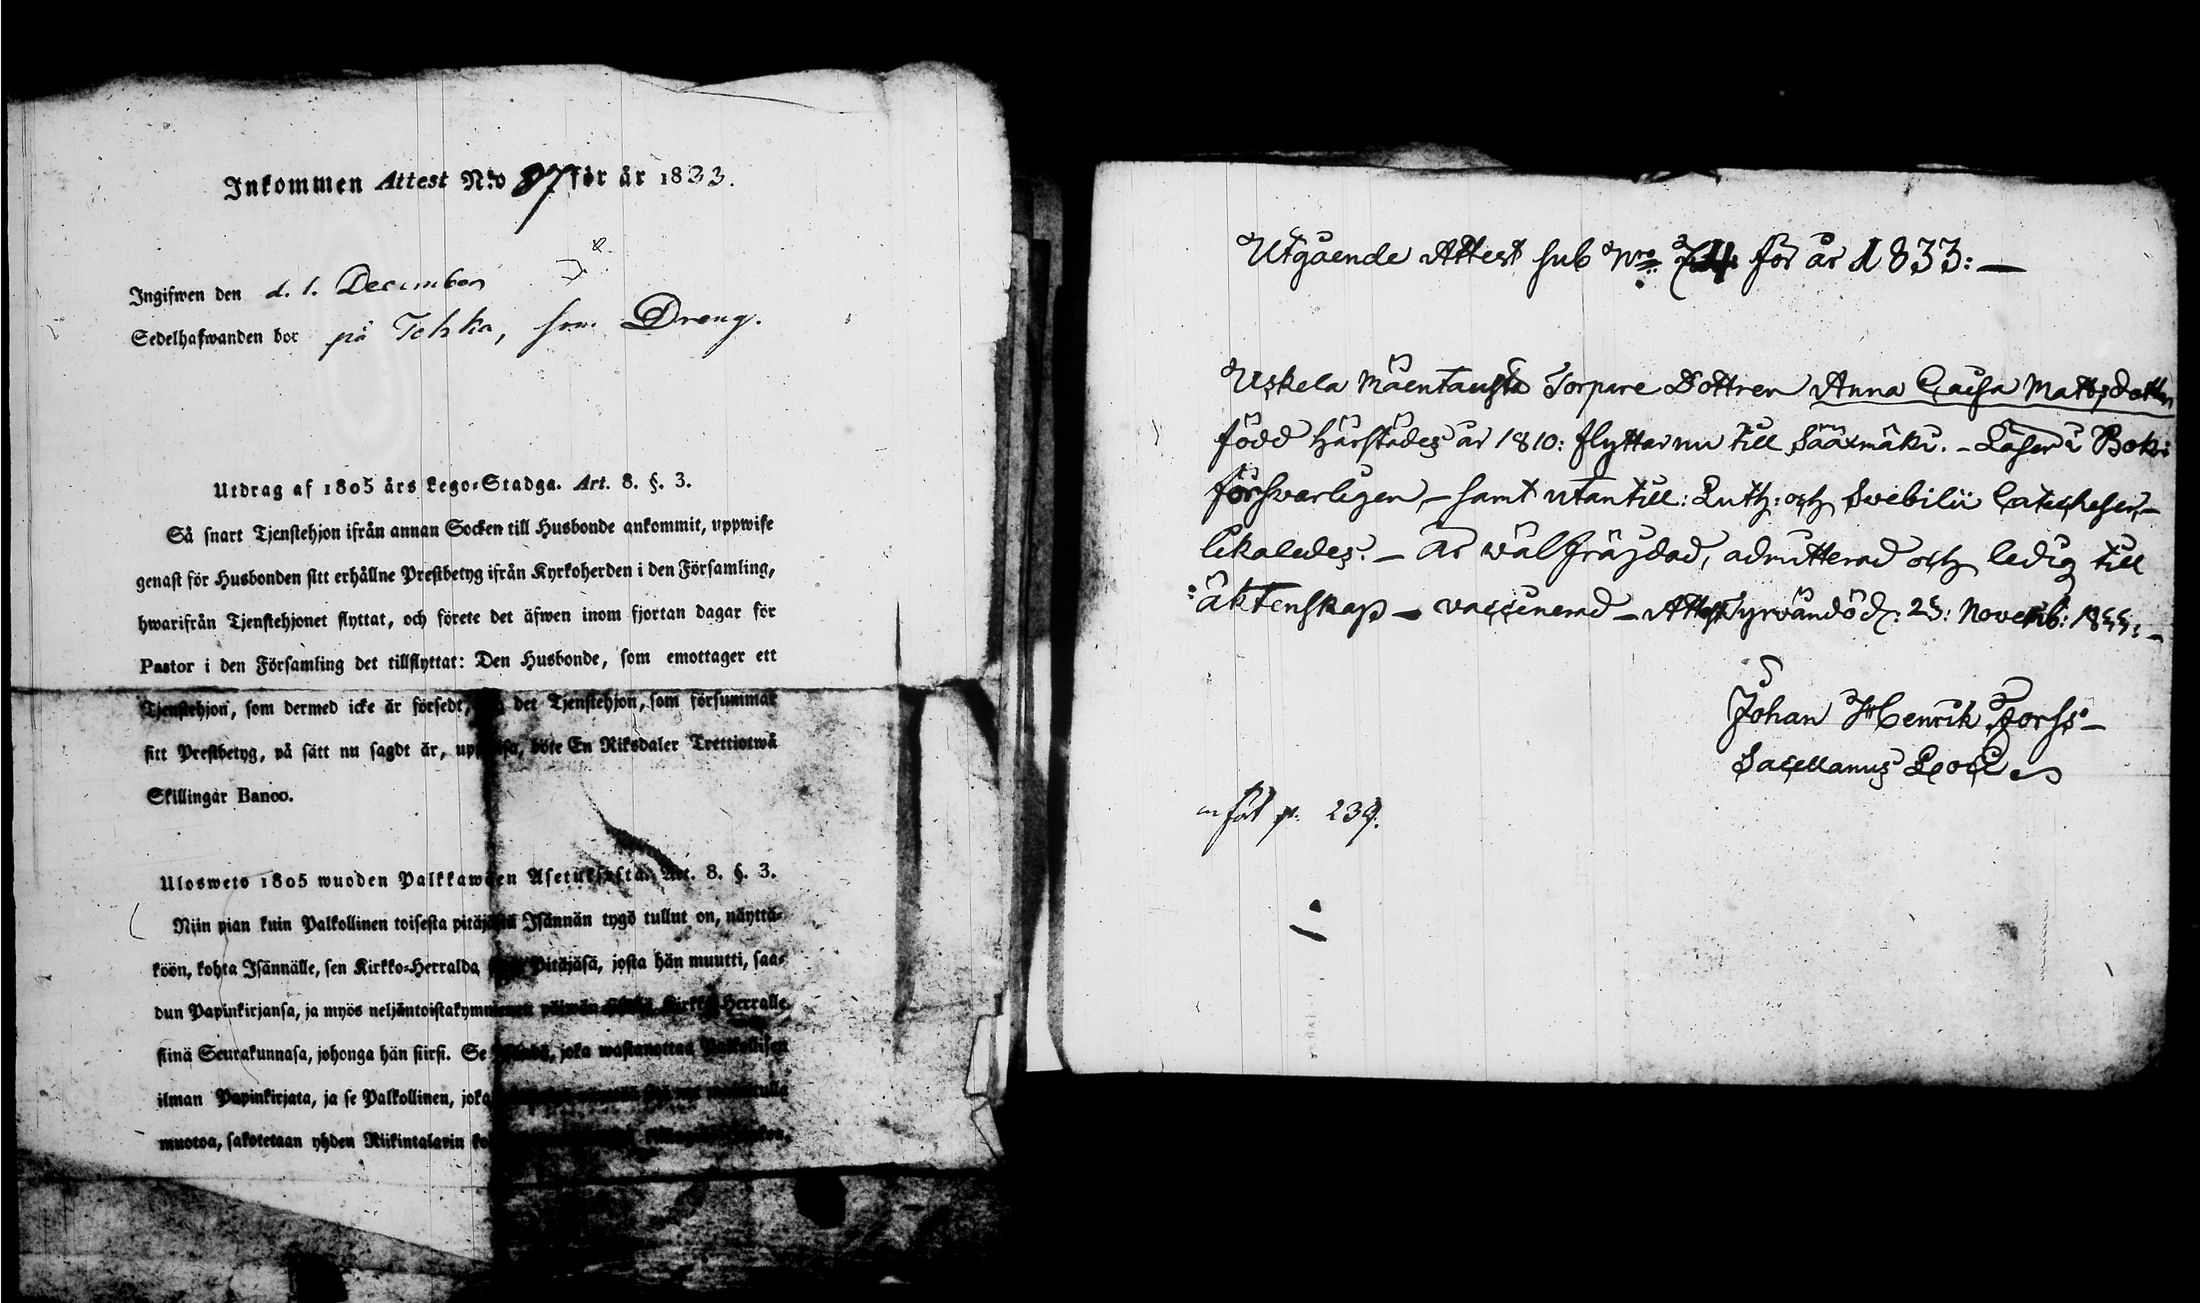 Inkommen Attest N:o 87 för år 1833.
Ingifwen den d. 1. December
Sedelhafwanden bor på Tehka, som Dreng.
Utdrag af 1805 års Lego-Stadga. Art. 8. §. 3.
Så snart Tjenstehjon ifrån annan Socken till Husbonde ankommit, uppwise
genast för Husbonden sitt erhållne Prestbetyg ifrån Kyrkoherden i den Församling,
hwarifrån Tjenstehjonet flyttat, och förete det äfwen inom fjortan dagar för
Pastor i den Församling det tillflyttat: Den Husbonde, som emottager ett
Tjenstehjon, som dermed icke är försedt, det Tjenstehjon, som försummar
sitt Prestbetyg, på sätt nu sagdt är, böte En Riksdaler Trettiotwå
Skillingar Banco.
Ulosweto 1805 wuoden Palkkawäen Asetuksesta. Art. 8. §. 3.
Niin pian kuin Palkollinen toisesta pitäjästä Isännän tygö tullut on, näyttä-
köön, kohta Isännälle, sen Kirkko-Herralda Pitäjäsä, josta hän muutti, saa-
dun Papinkirjansa, ja myös neljäntoistakymmenen päiwän Kirkko-Herralle
siinä Seurakunnasa, johonga hän siirsi. Se joka wastanottaa Palkollisen
ilman Papinkirjata, ja se Palkollinen, joka
muotoa, sakotetaan yhden Riikintalarin
Utgående Attest sub Nro 74 för år 1833: —
Uskela Mäentausta Torpare Dottren Anna Caisa Mattsdotter
född härstädes år 1810: flyttar nu till Sääxmäki. – Läser i Bok:
försvarligen, – samt utantill: Luth: och Svebilii Catecheser, –
likaledes. – Är wälfräjdad, admitterad och ledig till
äktenskap – vaccinerad – Attest: Tyrvändö d: 25: Novemb: 1833: –
Johan Henrik Forss –
Sacellanus Loci
infört p. 239.